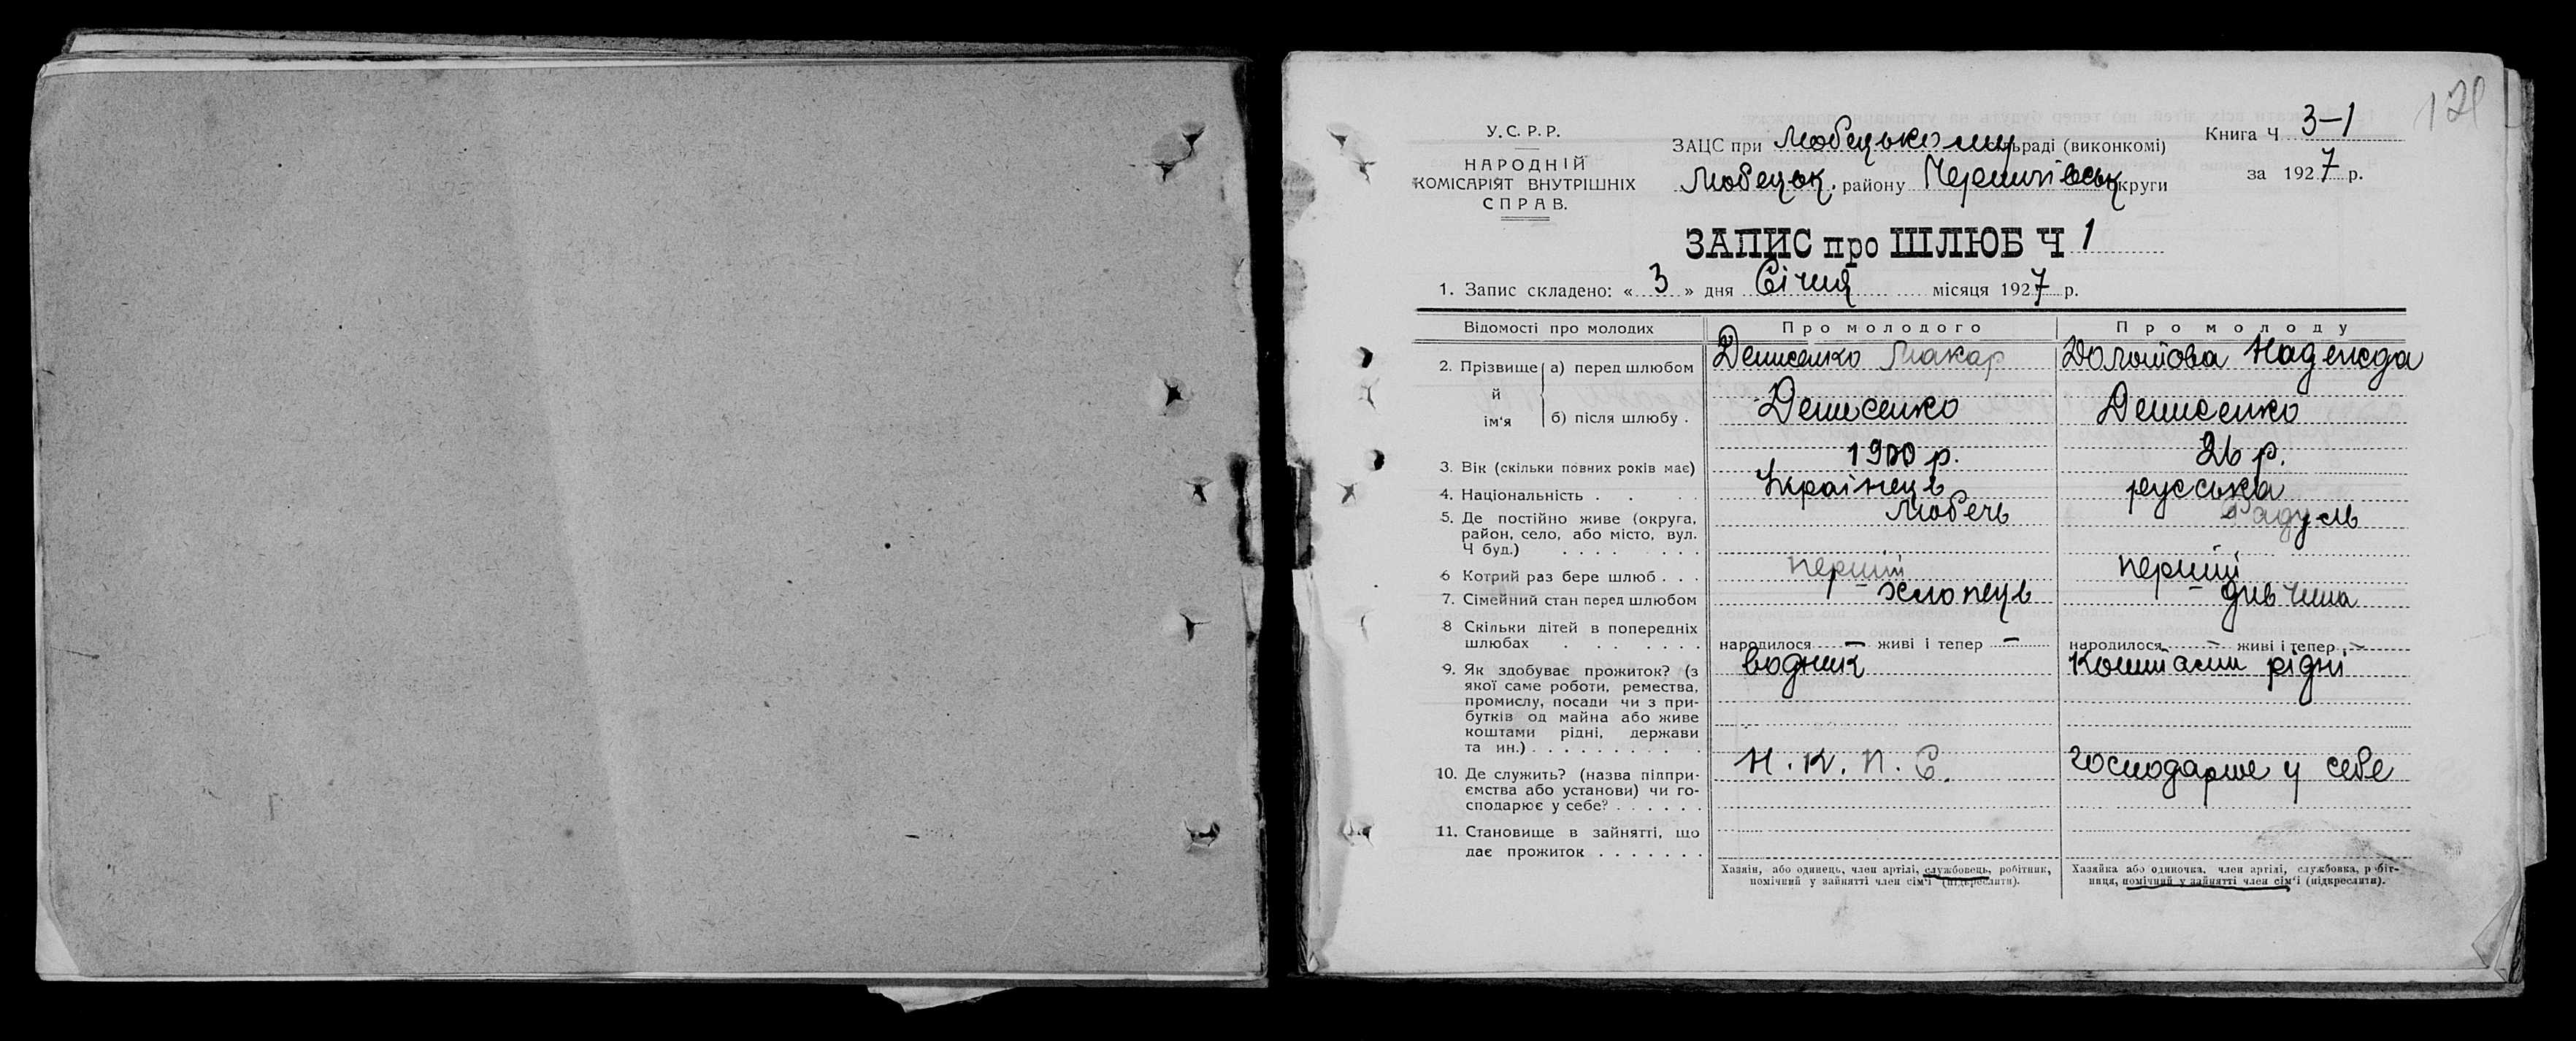 121
У. С. Р. Р.
НАРОДНІЙ
КОМІСАРІЯТ ВНУТРІШНІХ
СПРАВ.
ЗАЦС при Любецькому раді (виконкомі)
Любецьк. району Чернигівськ округи
Книга Ч 3-1
за 1927 р.
ЗАПИС про ШЛЮБ Ч 1
1. Запис складено: « 3 » дня Січня місяця 1927 р.
Відомості про молодих
Про молодого
Про молоду
2. Прізвище й ім'я
а) перед шлюбом
Денисенко Макар
Надежда
б) після шлюбу .
Денисенко
Денисенко
3. Вік (скільки повних років має)
1900 р.
26 р.
4. Національність . . . .
Українець
руська
5. Де постійно живе (округа,
район, село, або місто, вул.
Ч буд.) . . . . . . .
Любечь
Радуль
6 Котрий раз бере шлюб . . .
перший
перший
7. Сімейний стан перед шлюбом
хлопець
дивчина
8 Скільки дітей в попередніх
шлюбах . . . . . .
народилося — живі і тепер —
народилося — живі і тепер —
9. Як здобуває прожиток? (з
якої саме роботи, ремества,
промислу, посади чи з при-
бутків од майна або живе
коштами рідні, держави
та ин.) . . . . . . . . . .
водник
коштами рідні
10. Де служить? (назва підпри-
ємства або установи) чи го-
сподарює у себе? . . . . . .
Н. К. П. С.
господарює у себе
11. Становище в зайнятті, що
дає прожиток . . . . . . .
Хазяїн, або одинець, член артілі, службовець, робітник,
помічний у зайнятті член сім'ї (підкреслити).
Хазяйка або одиночка, член артілі, службовка, робіт-
ниця, помічний у зайнятті член сім'ї (підкреслити).